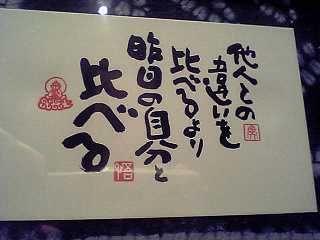 他人との
違いを
比べるより
昨日の自分と
比べる